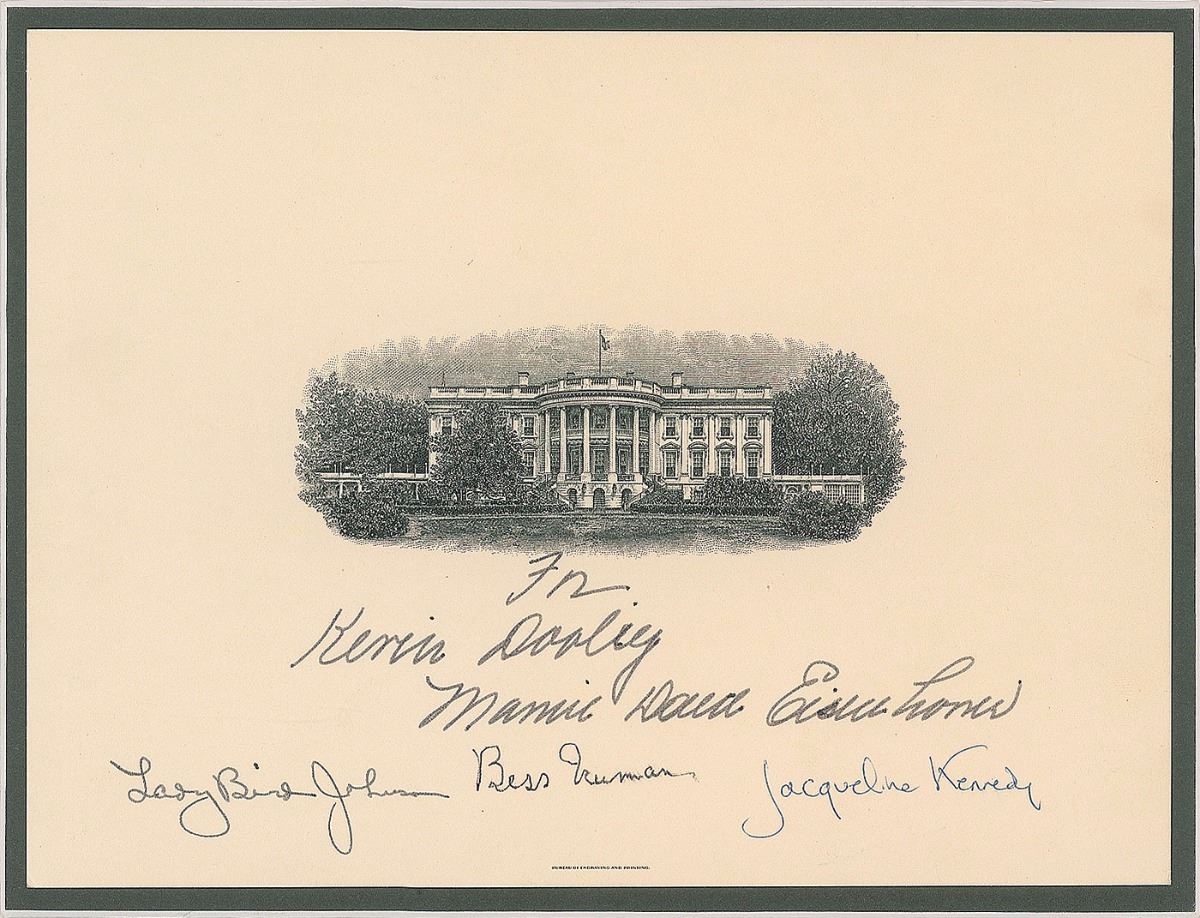 For
Kevin Dooley
Mamie Doud Eisenhower
Lady Bird Johnson Bess Truman Jacqueline Kennedy
BUREAU OF ENGRAVING AND PRINTING.